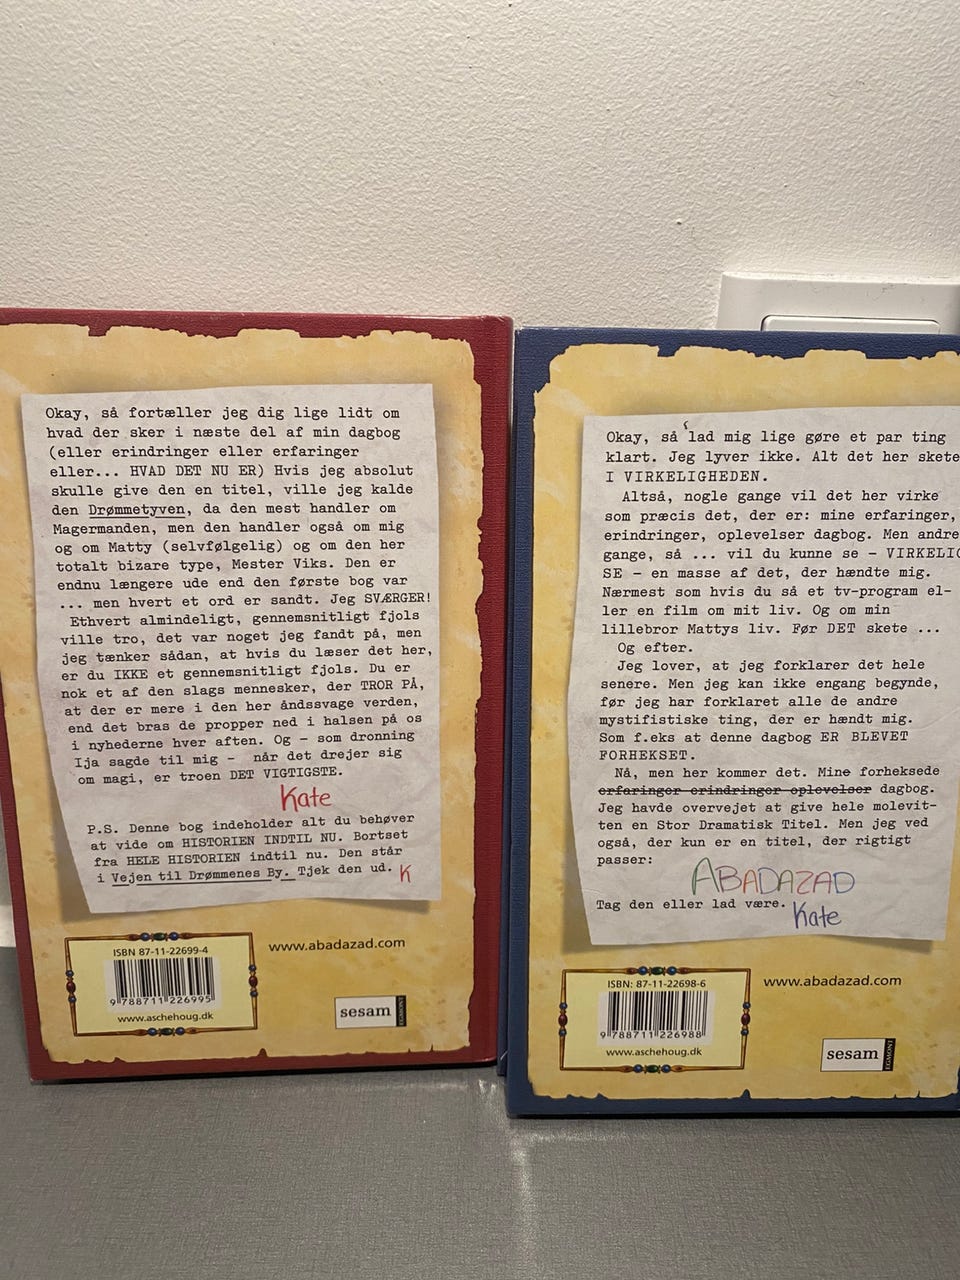 Okay, så fortæller jeg dig lige lidt om
hvad der sker i næste del af min dagbog
(eller erindringer eller erfaringer
eller... HVAD DET NU ER) Hvis jeg absolut
skulle give den en titel, ville jeg kalde
den Drømmetyven, da den mest handler om
Magermanden, men den handler også om mig
og om Matty (selvfølgelig) og om den her
totalt bizare type, Mester Viks. Den er
endnu længere ude end den første bog var
... men hvert et ord er sandt. Jeg SVÆRGER!
Ethvert almindeligt, gennemsnitligt fjols
ville tro, det var noget jeg fandt på, men
jeg tænker sådan, at hvis du læser det her,
er du IKKE et gennemsnitligt fjols. Du er
nok et af den slags mennesker, der TROR PÅ,
at der er mere i den her åndssvage verden,
end det bras de propper ned i halsen på os
i nyhederne hver aften. Og - som dronning
Ija sagde til mig - når det drejer sig
om magi, er troen DET VIGTIGSTE.
Kate
P.S. Denne bog indeholder alt du behøver
at vide om HISTORIEN INDTIL NU. Bortset
fra HELE HISTORIEN indtil nu. Den står
i Vejen til Drømmenes By. Tjek den ud. K
ISBN 87-11-22699-4
9 788711 226995
www.aschehoug.dk
www.abadazad.com
sesam
EGMONT
Okay, så lad mig lige gøre et par ting
klart. Jeg lyver ikke. Alt det her skete
I VIRKELIGHEDEN.
Altså, nogle gange vil det her virke
som præcis det, der er: mine erfaringer,
erindringer, oplevelser dagbog. Men andre
gange, så ... vil du kunne se - VIRKELIG
SE - en masse af det, der hændte mig.
Nærmest som hvis du så et tv-program el-
ler en film om mit liv. Og om min
lillebror Mattys liv. Før DET skete ...
Og efter.
Jeg lover, at jeg forklarer det hele
senere. Men jeg kan ikke engang begynde,
før jeg har forklaret alle de andre
mystifistiske ting, der er hændt mig.
Som f.eks at denne dagbog ER BLEVET
FORHEKSET.
Nå, men her kommer det. Mine forheksede
erfaringer erindringer oplevelser dagbog.
Jeg havde overvejet at give hele molevit-
ten en Stor Dramatisk Titel. Men jeg ved
også, der kun er en titel, der rigtigt
passer:
ABADAZAD
Tag den eller lad være. Kate
ISBN: 87-11-22698-6
9 788711 226988
www.aschehoug.dk
www.abadazad.com
sesam
EGMONT